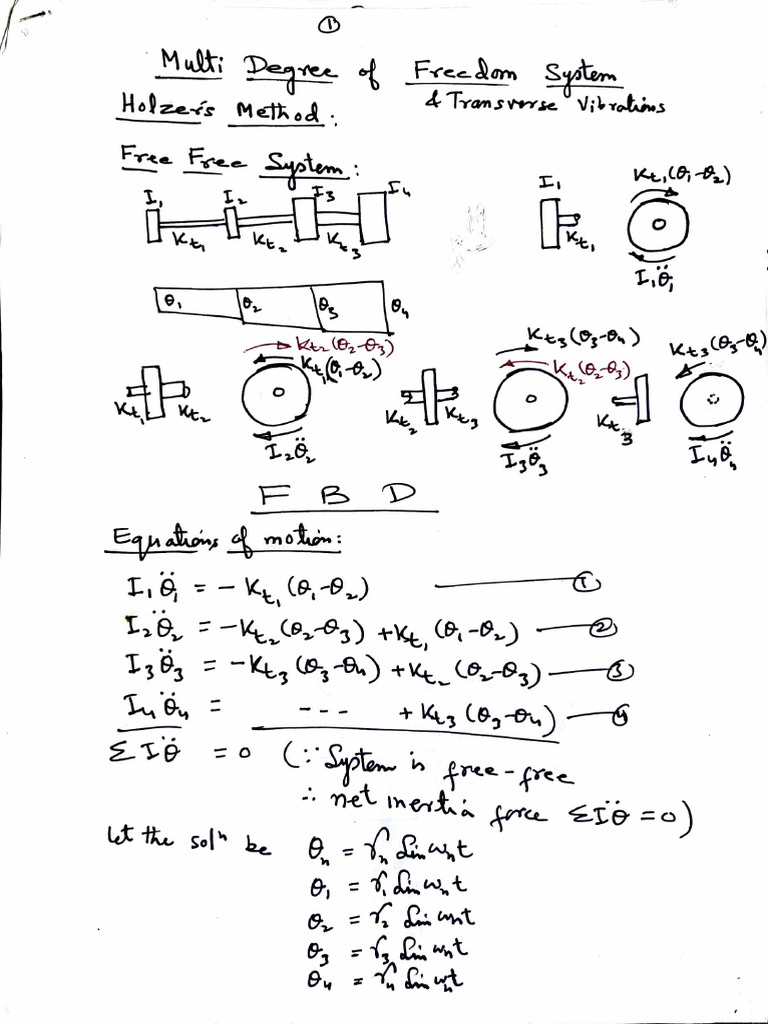 ①
Multi Degree of Freedom System
& Transverse Vibrations
Holzer's Method:
Free Free System:
I₁ I₂ I₃ I₄
Kt₁ Kt₂ Kt₃
I₁ Kt₁
Kt₁(θ₁-θ₂)
I₁θ̈₁
θ₁ θ₂ θ₃ θ₄
Kt₁ Kt₂
Kt₂(θ₂-θ₃)
Kt₁(θ₁-θ₂)
I₂θ̈₂
Kt₂ Kt₃
Kt₃(θ₃-θ₄)
Kt₂(θ₂-θ₃)
I₃θ̈₃
Kt₃
Kt₃(θ₃-θ₄)
I₄θ̈₄
F B D
Equations of motion:
I₁θ̈₁ = - Kt₁(θ₁-θ₂) — ①
I₂θ̈₂ = -Kt₂(θ₂-θ₃) + Kt₁(θ₁-θ₂) — ②
I₃θ̈₃ = -Kt₃(θ₃-θ₄) + Kt₂(θ₂-θ₃) — ③
I₄θ̈₄ = --- + Kt₃(θ₃-θ₄) — ④
ΣIθ̈ = 0 (∵ System is free-free
∴ net inertia force ΣIθ̈ = 0)
let the solⁿ be θₙ = rₙ Sin ωₙt
θ₁ = r₁ Sin ωₙt
θ₂ = r₂ Sin ωₙt
θ₃ = r₃ Sin ωₙt
θ₄ = r₄ Sin ωₙt